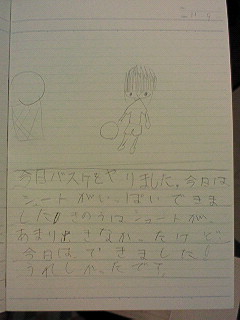 今日バスケをやりました。今日は
シュートがいっぱいできま
した!!きのうはシュートが、
あまりできなかったけど
今日は、できました!
うれしかったです。